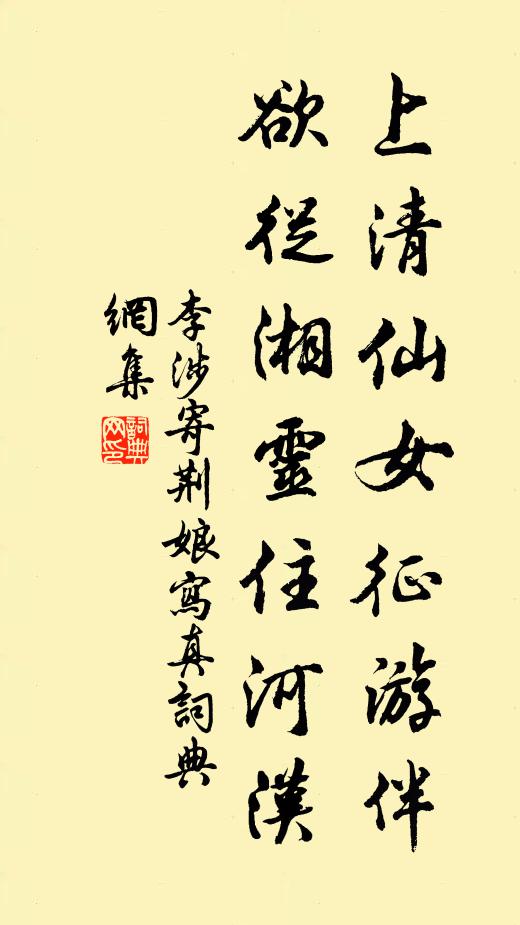 上清仙女征游伴
欲從湘靈住河漢
李涉寄荆娘寫真詞典
網集
詞典網印